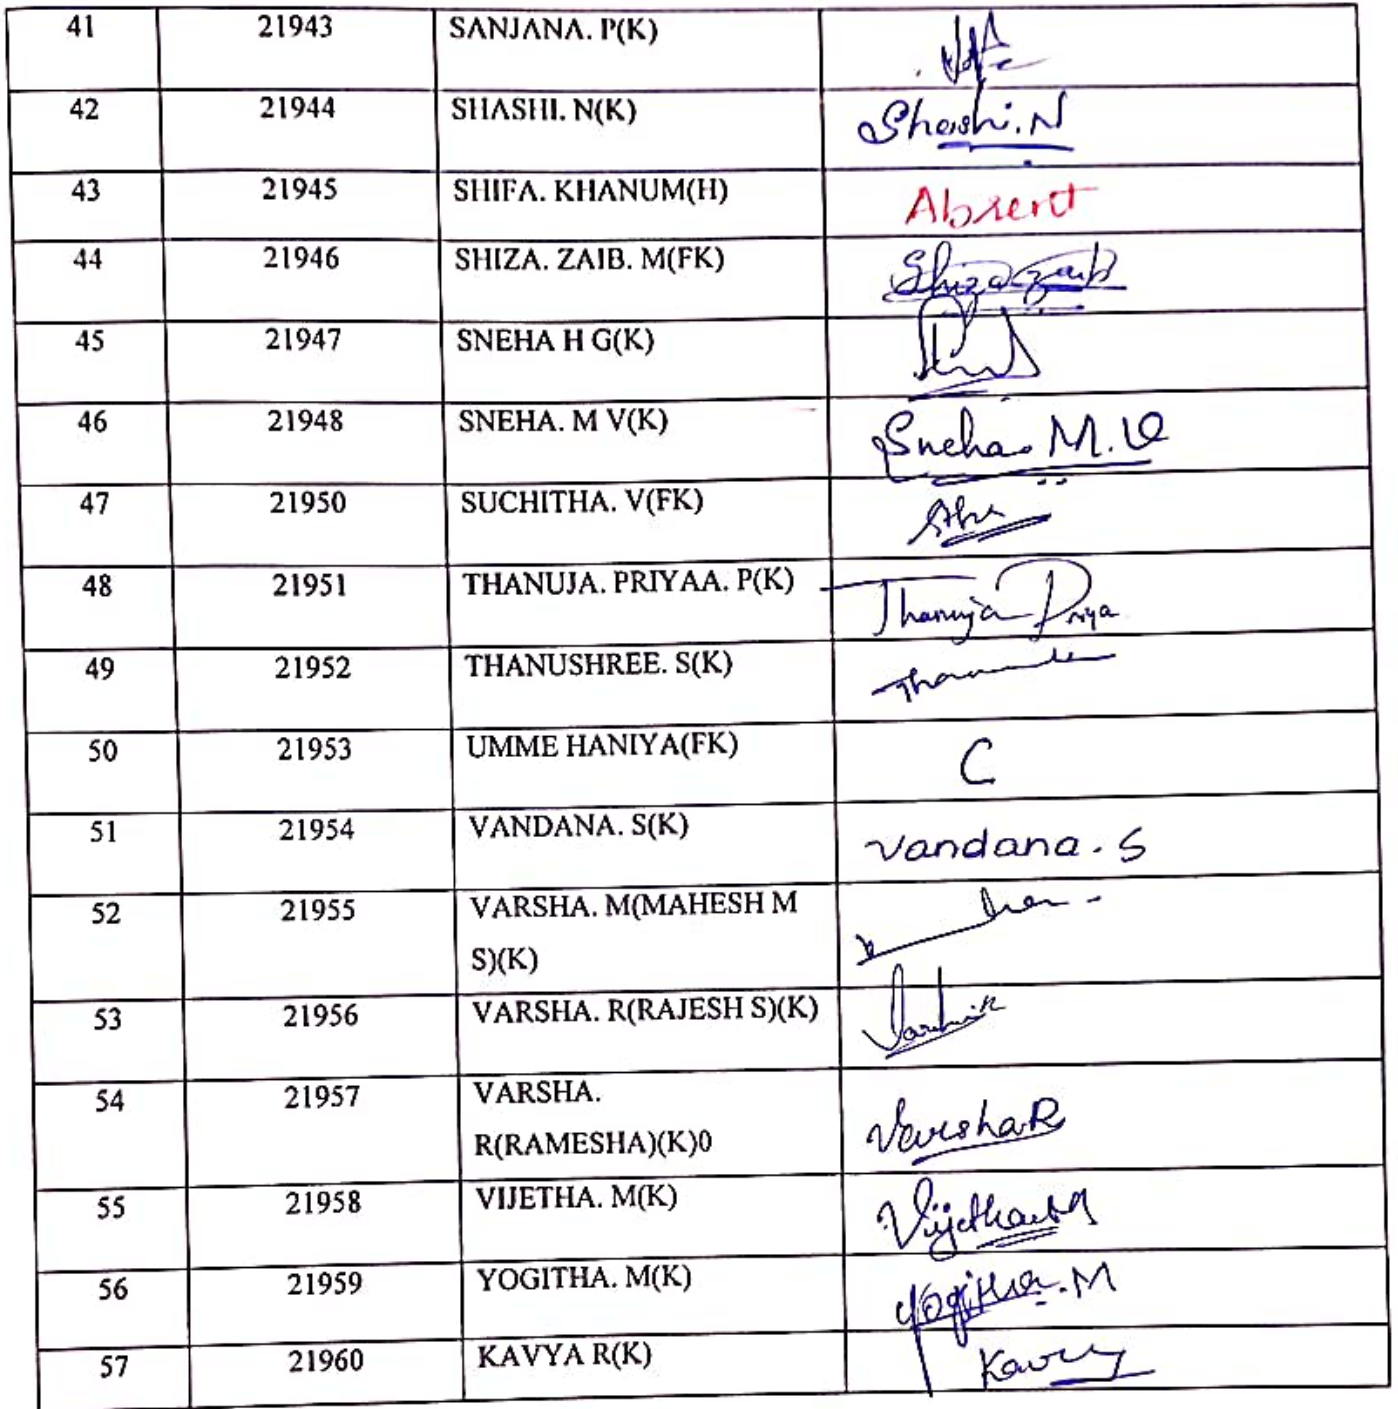 41 21943 SANJANA. P(K)
42 21944 SHASHI. N(K) Shashi.N
43 21945 SHIFA. KHANUM(H) Absent
44 21946 SHIZA. ZAIB. M(FK) Shiza zaib
45 21947 SNEHA H G(K)
46 21948 SNEHA. M V(K) Sneha. M.V
47 21950 SUCHITHA. V(FK)
48 21951 THANUJA. PRIYAA. P(K) Thanuja Priya
49 21952 THANUSHREE. S(K)
50 21953 UMME HANIYA(FK) C
51 21954 VANDANA. S(K) Vandana. S
52 21955 VARSHA. M(MAHESH M
S)(K)
53 21956 VARSHA. R(RAJESH S)(K)
54 21957 VARSHA.
R(RAMESHA)(K)0 VarshaR
55 21958 VIJETHA. M(K) Vijetha.M
56 21959 YOGITHA. M(K) Yogitha.M
57 21960 KAVYA R(K)